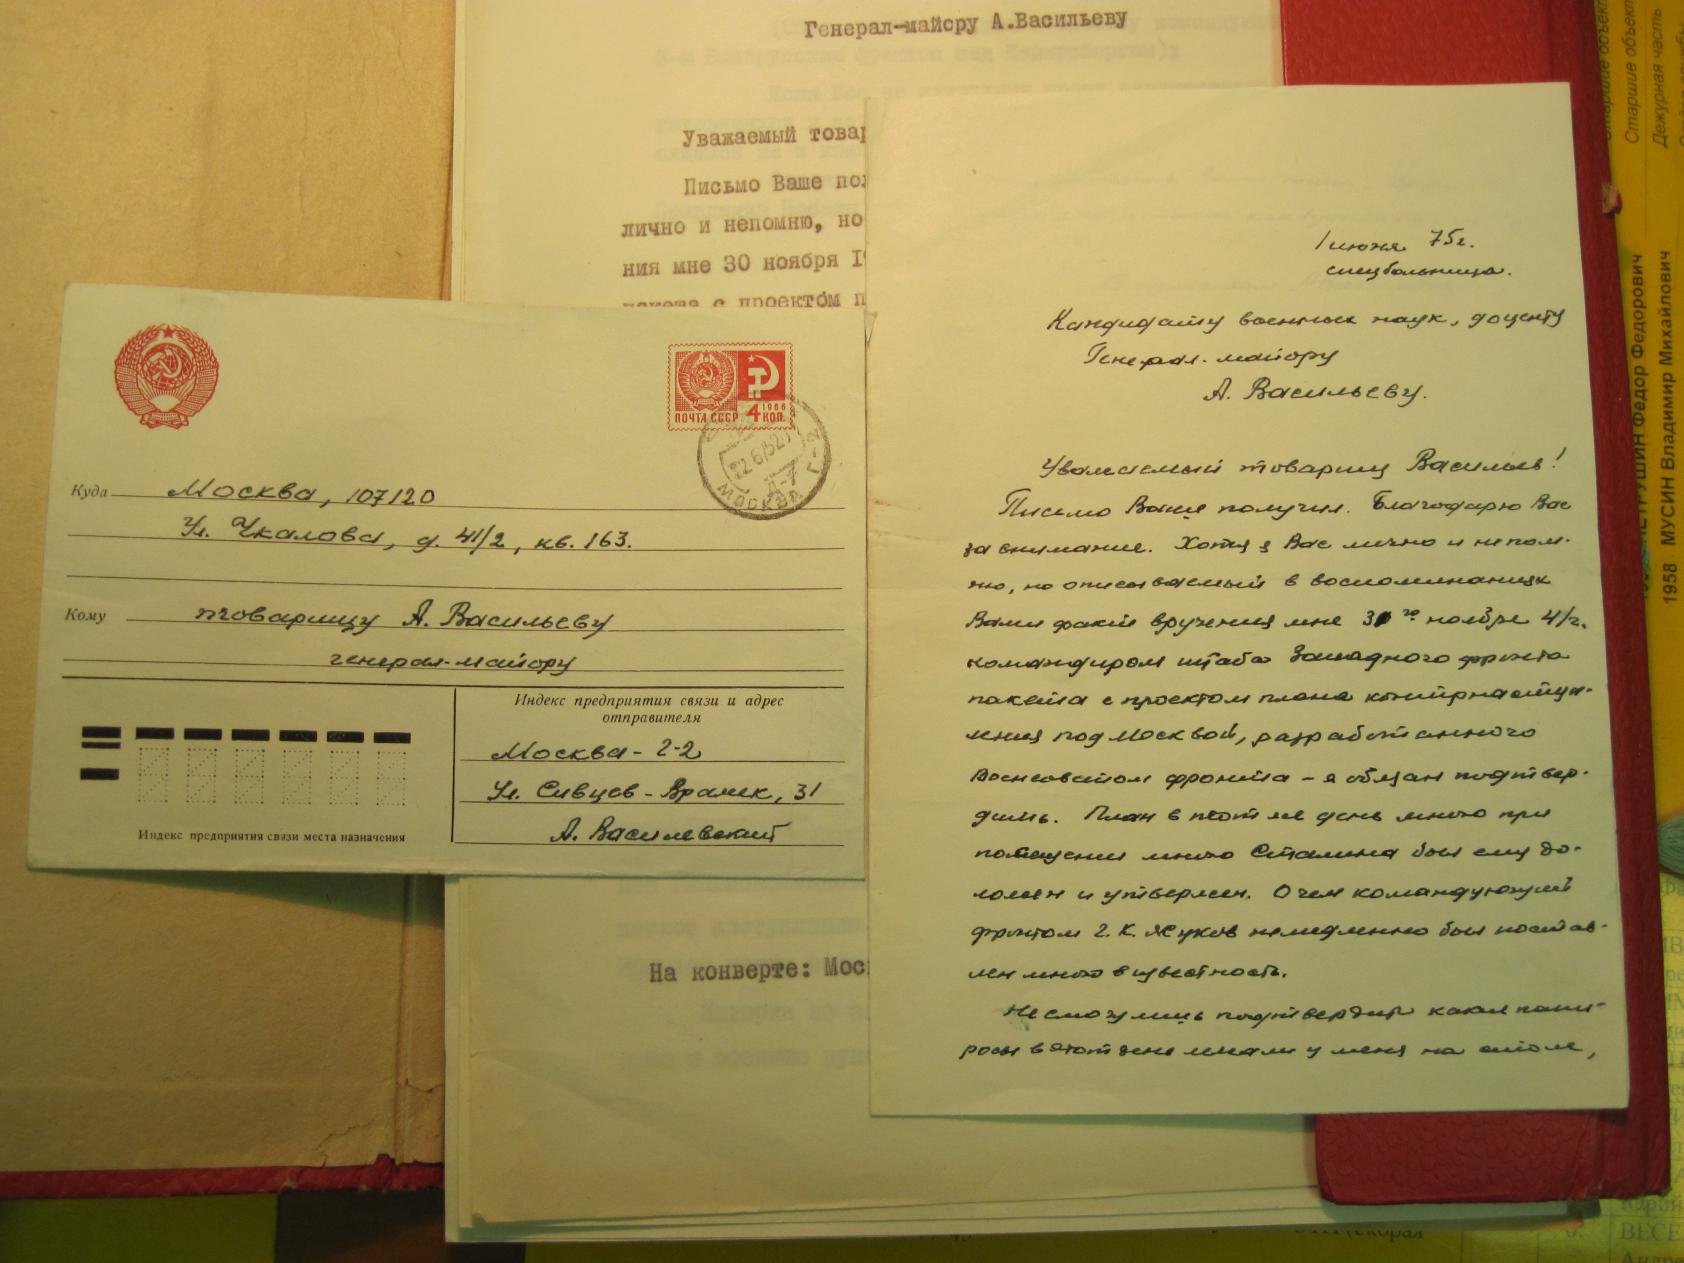 Генерал-майору А.Васильеву
Уважаемый товар
Письмо Ваше пол
лично и непомню, но
ния мне 30 ноября 19
пакета с проектом п
На конверте: Моск
ПОЧТА СССР
1966
4 КОП.
МОСКВА
Г-2
Куда Москва, 107120
Ул. Чкалова, д. 41/2, кв. 163.
Кому товарищу А. Васильеву
генерал-майору
Индекс предприятия связи и адрес
отправителя
Москва - Г-2
Ул. Сивцев-Вражек, 31
А. Василевский
Индекс предприятия связи места назначения
1 июня 75г.
спецбольница.
Кандидату военных наук, доценту
Генерал-майору
А. Васильеву.
Уважаемый товарищ Васильев!
Письмо Ваше получил. Благодарю Вас
за внимание. Хотя я Вас лично и непом-
ню, но описываемый в воспоминаниях
Вами факт вручения мне 30го ноября 41г.
командиром штаба Западного фронта
пакета с проектом плана контрнаступ-
ления под Москвой, разработанного
Военсоветом фронта – я обязан подтвер-
дить. План в тот же день мною при
посещении мною Сталина был ему до-
ложен и утвержден. О чем командующий
фронтом Г. К. Жуков немедленно был постав-
лен мною в известность.
Не смогу лишь подтвердить какие папи-
росы в этот день лежали у меня на столе,
Старшие объект
Дежурная часть
ПЕТРУШИН Федор Федорович
1958 МУСИН Владимир Михайлович
ВЕСЕ
Андре